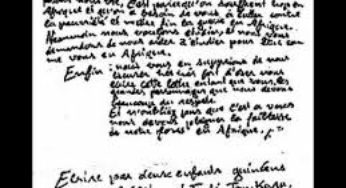 nous nous, c'est parce qu'on souffre trop en
Afrique et qu'on a besoin de vous à lutter contre
la pauvreté et mettre fin à la guerre en Afrique.
Néanmoins nous voulons étudier, et nous vous
demandons de nous aider à étudier pour être com
me vous en Afrique.
Enfin : nous vous en supplions de nous
excuser très très fort d'oser vous
écrire cette lettre en tant que vous, les
grands personnages à qui nous devons
beaucoup de respect.
Et n'oubliez pas que c'est à vous
nous devons plaindre la faiblesse
de notre force en Afrique.
Ecrite par deux enfants guinéens